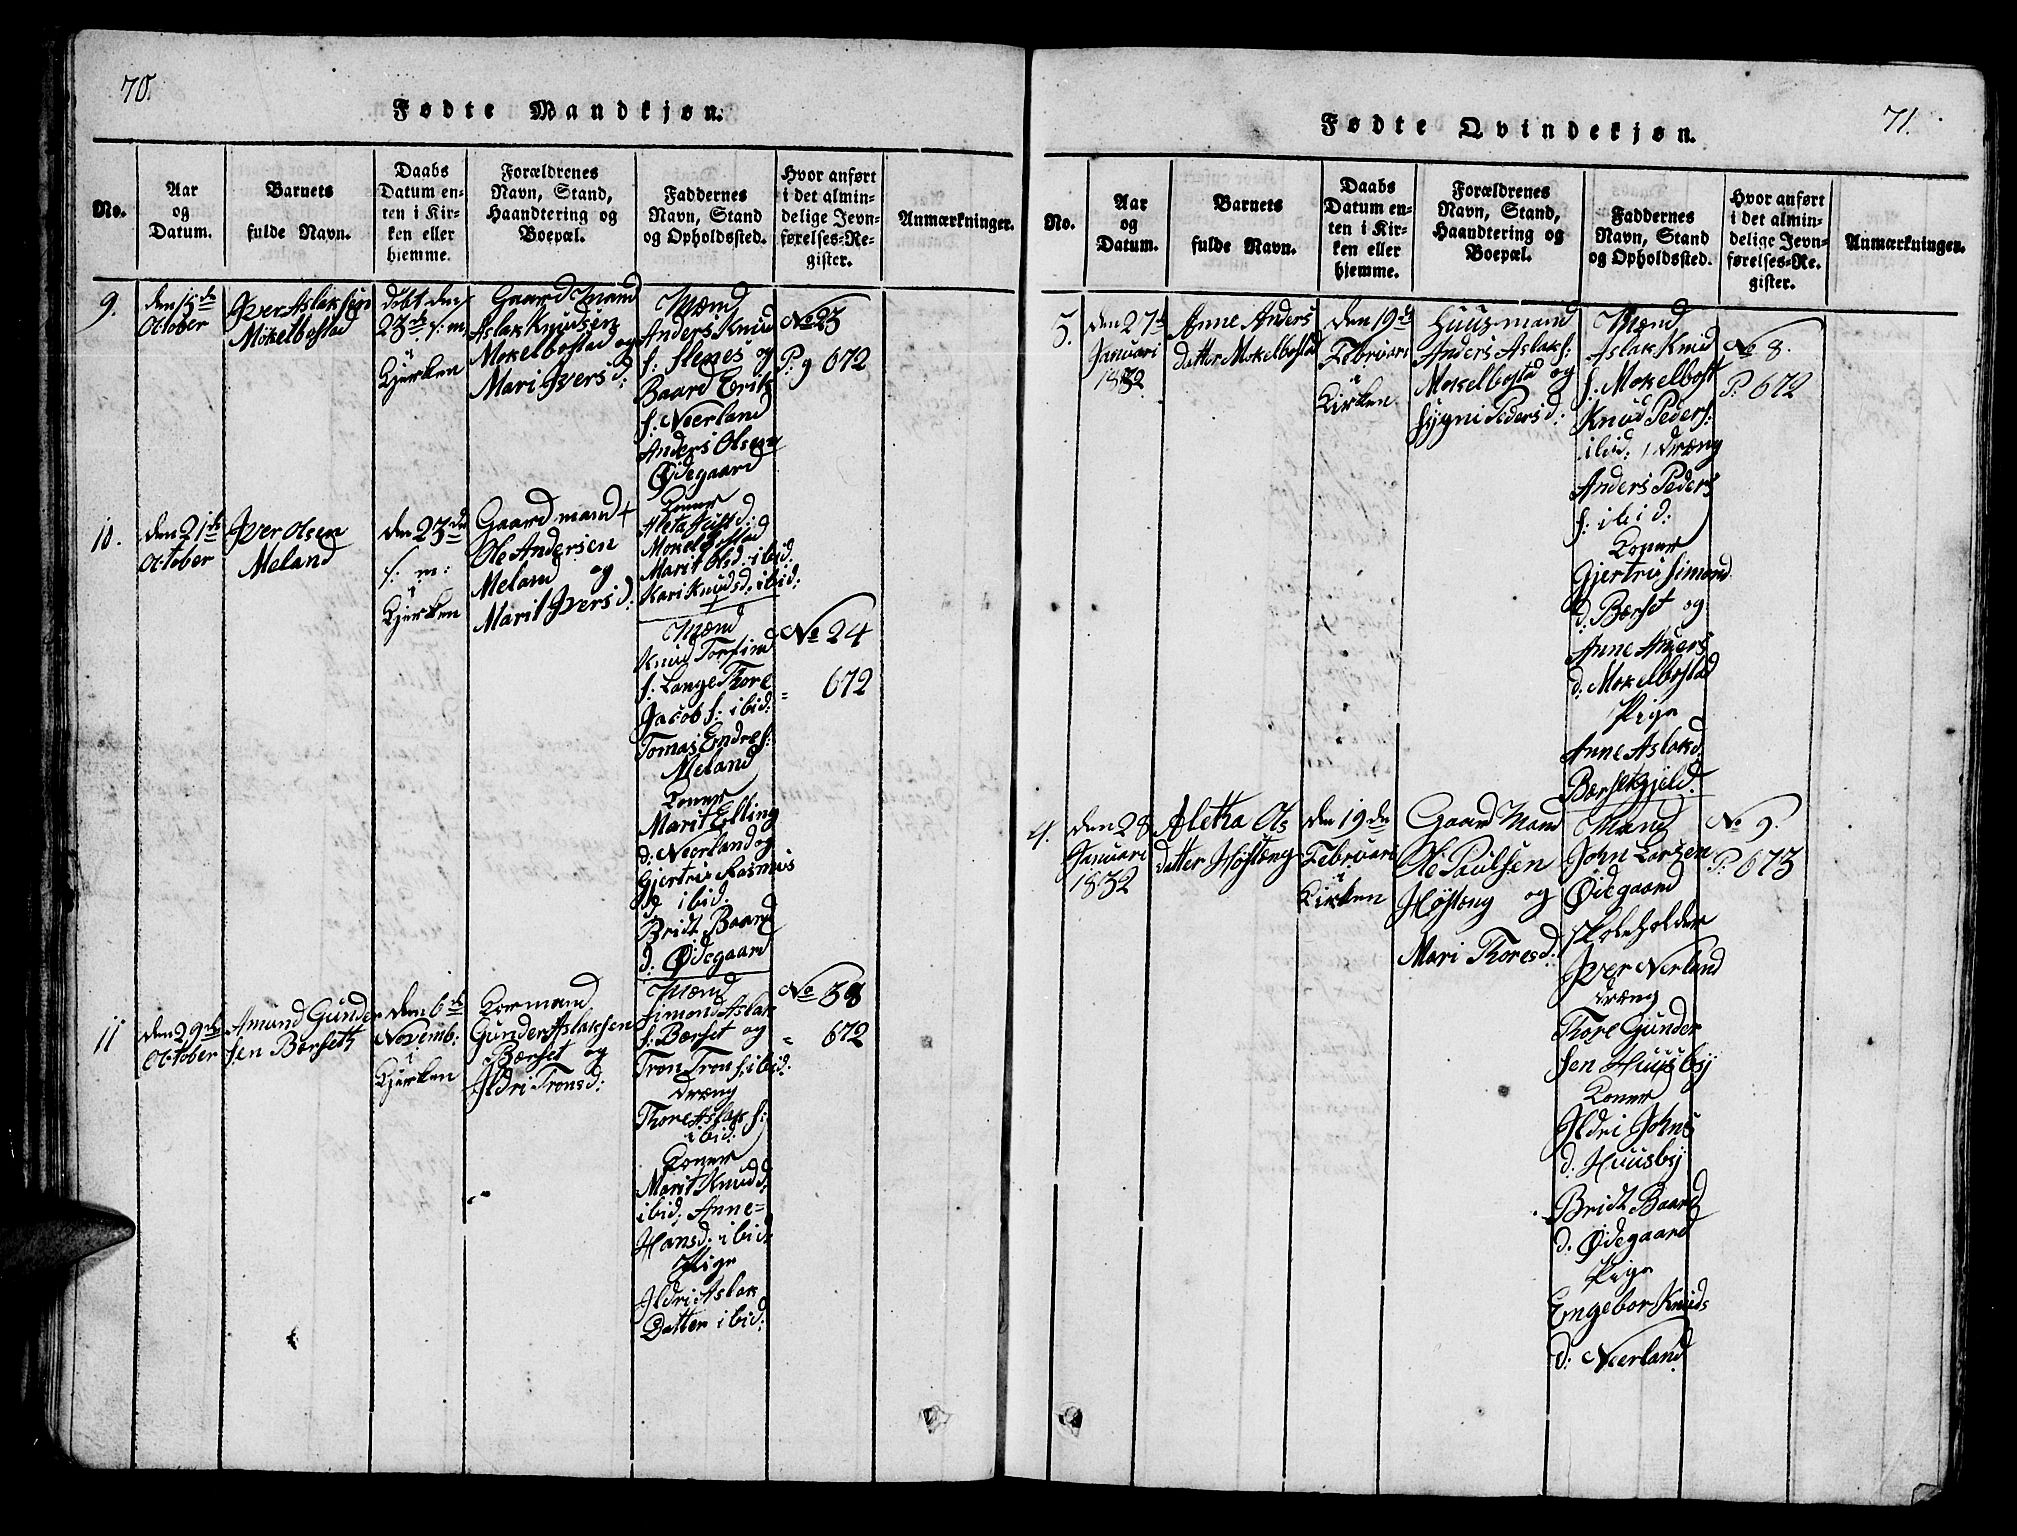 70.
Fødte Mandkjøn.
No.
Aar
og
Datum.
Barnets
fulde Navn.
Daabs
Datum en-
ten i Kir-
ken eller
hjemme.
Forældrenes
Navn, Stand,
Haandtering og
Boepæl.
Faddernes
Navn, Stand
og Opholdssted.
Hvor anført
i det almin-
delige Jevn-
førelses-Re-
gister.
Anmærkninger.
9.
den 15de
October
Iver Aslaksen
Mokelbostad
døbt den
23de s: m:
i
Kjerken
Gaardmand
Aslak Knudsen
Mokelbostad og
Mari Ivers d:
Mænd
Anders Knud
s: Flenes og
Baard Erik
s: Neerland
Anders Olsen
Ødegaard
Koner
Mokelbostad
Marit Ols d. ibid.
Kari Knuds d. ibid:
No 23
P: 672
10.
den 21de
October
Iver Olsen
Meland
den 23de
s: m:
i
Kjerken
Gaardmand
Ole Andersen
Meland og
Marit Ivers d:
Mænd
Knud Torfind
s: Lange Thore
Jacob s: ibid:
Tomas Endre s:
Meland
Koner
Marit Elling
d: Neerland og
Gjertru Rasmus
d ibid.
Bridt Baard
d: Ødegaard
No 24
= 672
11
den 29de
October
Amund Gunder
sen Bærseth
den 6te
Novemb:
i
Kjerken
Gunder Aslaksen
Bærset og
Ildri Trons d:
Mænd
Simond Aslak
s: Bærset og
Tron Tron s: ibid:
Dræng
Thore Aslak s:
ibid:
Koner
Marit Knud d.
ibid; Anne
Hans d. ibid.
Pige
Ildri Aslak
Datter ibid:
No 38
= 672
71.
Fødte Qvindekjøn.
No.
Aar
og
Datum.
Barnets
fulde Navn.
Daabs
Datum en-
ten i Kir-
ken eller
hjemme.
Forældrenes
Navn, Stand,
Haandtering og
Boepæl.
Faddernes
Navn, Stand
og Opholdssted.
Hvor anført
i det almin-
delige Jevn-
førelses-Re-
gister.
Anmærkninger.
3.
den 27de
Januari
1832
Anne Anders
datter Mokelbostad
den 19de
Februari
i
Kirken
Huusmand
Anders Aslak s:
Mokelbostad og
Sygni Peders d:
Mænd
Aslak Knud
s. Mokelbost
Knud Peder s:
ibid: Dræng
Anders Peders
s: ibid:
Koner
Gjertru Simond
d. Bærset og
Anne Anders
d: Mokelbostad
Pige
Anne Aslak d.
No 8.
P: 672
4.
den 28
Januari
1832
Aletha Ols
datter Høsteng
den 19de
Februari
i
Kirken
Gaard Mand
Ole Paulsen
Høsteng og
Mari Thores d:
Mænd
John Larsen
Ødegaard
Skoleholder
Iver Nerland
Dræng
Thore Gunder
sen Huusby
Koner
Ildri Johns
d. Huusby
Bridt Baard
d. Ødegaard
Pige
Engebor Knuds
d: Neerland
No 9.
P: 673